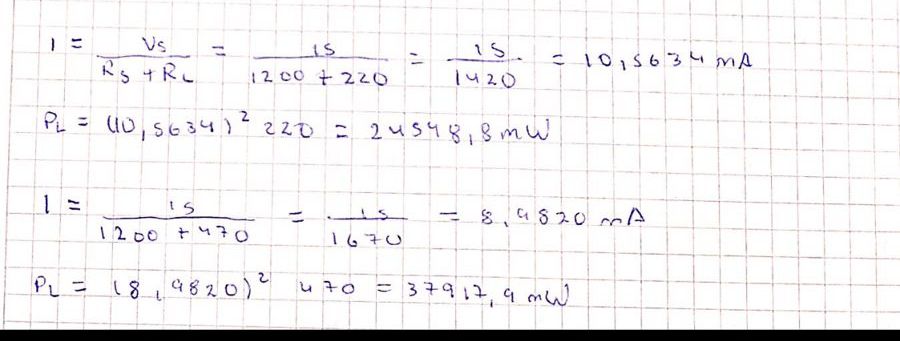 I = Vs / (Rs + RL) = 15 / (1200 + 220) = 15 / 1420 = 10,5634 mA
PL = (10,5634)² 220 = 24548,8 mW
I = 15 / (1200 + 470) = 15 / 1670 = 8,9820 mA
PL = (8,9820)² 470 = 37917,9 mW